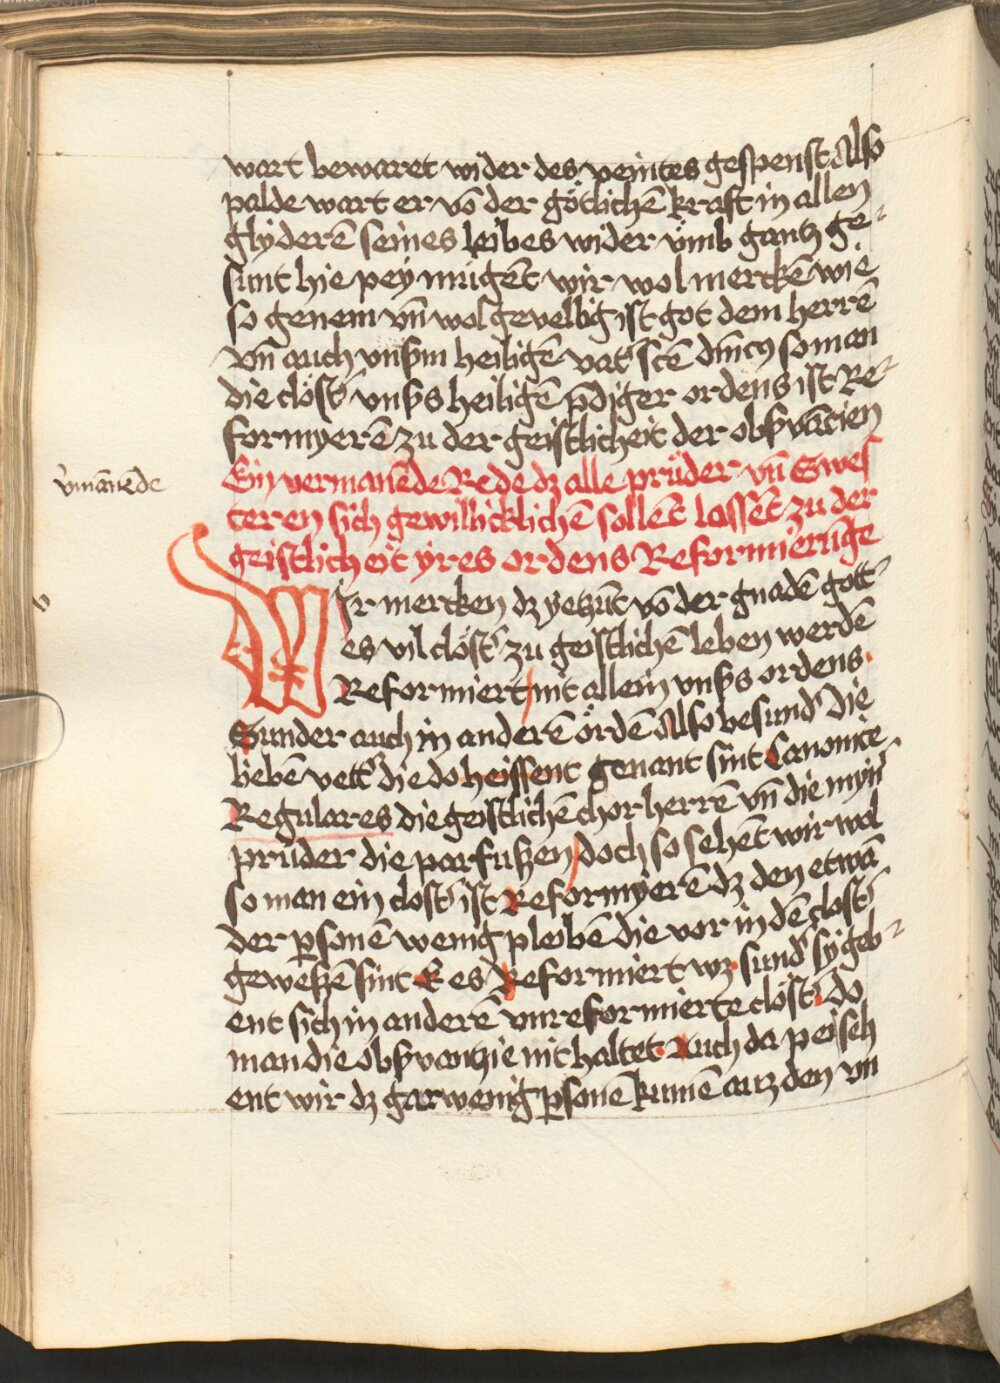 wart bewaret wider des veintes gespenst Also
palde wart er vō der götlichē kraft in allen
glyderē seines leibes wider vmb gantz ge
sunt hie pey mügēt wir wol merckē wie
so genem vn̄ wolgevellig ist got dem herrē
vn̄ auch vnsm heiligē vat' scē dm̄cꝯ so man
die clöst' vnsꝰs heiligē p̄diger ordens ist Re
formyerē zu der geistlicheit der obsꝰvācien
v'manēde
Ein vermanēde Rede dz alle prüder vn̄ Swes
teren sich gewillicklichē sollēt lassēt zu der
geistlicheit yres ordens Reformierūge
v
WIr mercken dz yetzūt vō der gnadē gott
es vil clöst' zu geistlichē leben werdē
Reformiert nit allein vnsꝰs ordens
Sunder auch in anderē ördē Also besund' die
liebē vett' die do heissent genant sint Canonice
Regulares die geistlichē chorherrē vn̄ die myn'
prüder die parfußen doch so sehēt wir wol
so man ein clost' ist Reformyerē dz den etwā
der ꝑsonē wenig pleibē die vor in dē clost'
geweßē sint E es Reformiert wz sund' sy geb
ent sich in anderē vnreformierte clöst' do
man die obsꝰvantzie nit haltet Auch da pei seh
ent wir dz gar wenig ꝑsonē kumē auz den vn